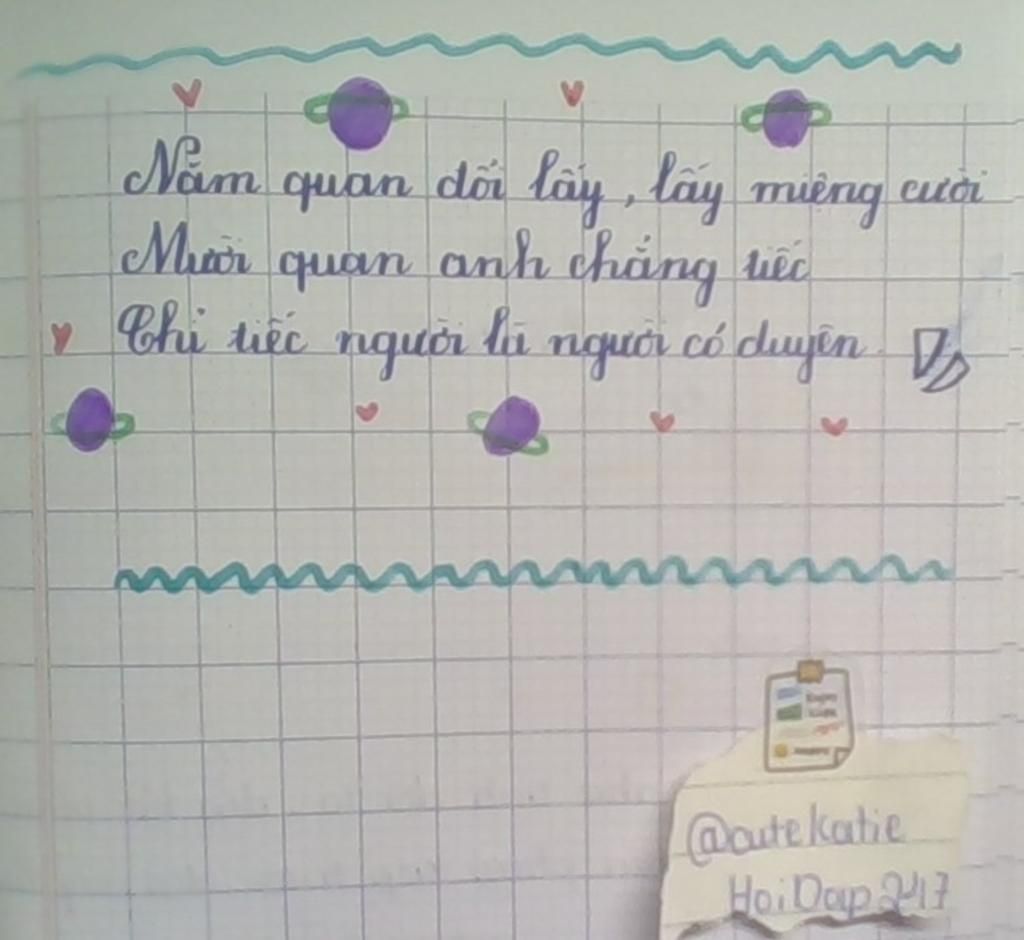 Năm quan dối lấy, lấy miệng cười
Mười quan anh chẳng tiếc
Chỉ tiếc người là người có duyên
@cutekatie
HoiDap247